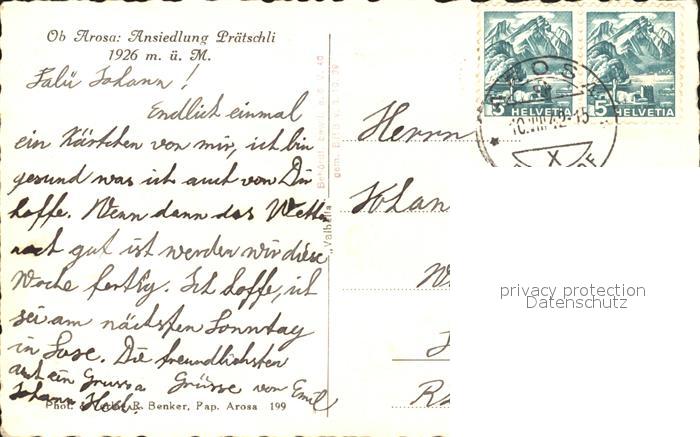 Ob Arosa: Ansiedlung Prätschli
1926 m. ü. M.
Salü Johann!
Endlich einmal
ein Kärtchen von mir, ich bin
gesund was ich auch von Dir
hoffe. Wenn dann das Wetter
noch gut ist werden wir diese
Woche fertig. Ich hoffe, ich
sei am nächsten Sonntag
in Suse. Die freundlichsten
Grüsse von Emil
auch ein Gruss a
Johann
Phot. & Verlag R. Benker, Pap. Arosa 199
"Valbella"
Herrn
Johan
5 HELVETIA
5 HELVETIA
AROSA
10.VIII.42-15
X
privacy protection
Datenschutz